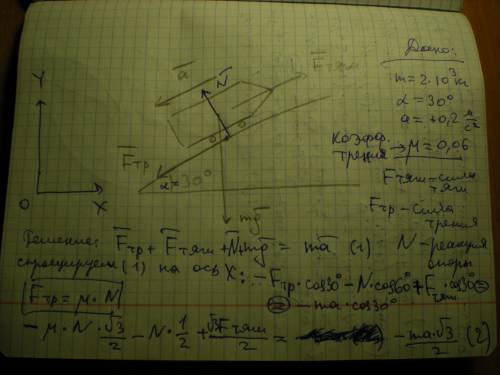 Дано:
m = 2·10³ кг
α = 30°
a = +0,2 м/с²
Коэфф. трения → μ = 0,06
Fтяги – сила тяги
Fтр – сила трения
N – реакция опоры
Y
X
O
a
N
Fтяги
Fтр
α = 30°
mg
Решение: Fтр + Fтяги + N + mg = ma (1)
спроецируем (1) на ось X: -Fтр·cos30° - N·cos60° + Fтяги·cos30° =
= -ma·cos30°
Fтр = μ·N
- μ·N·√3/2 - N·1/2 + √3Fтяги/2 = - ma·√3/2 (2)